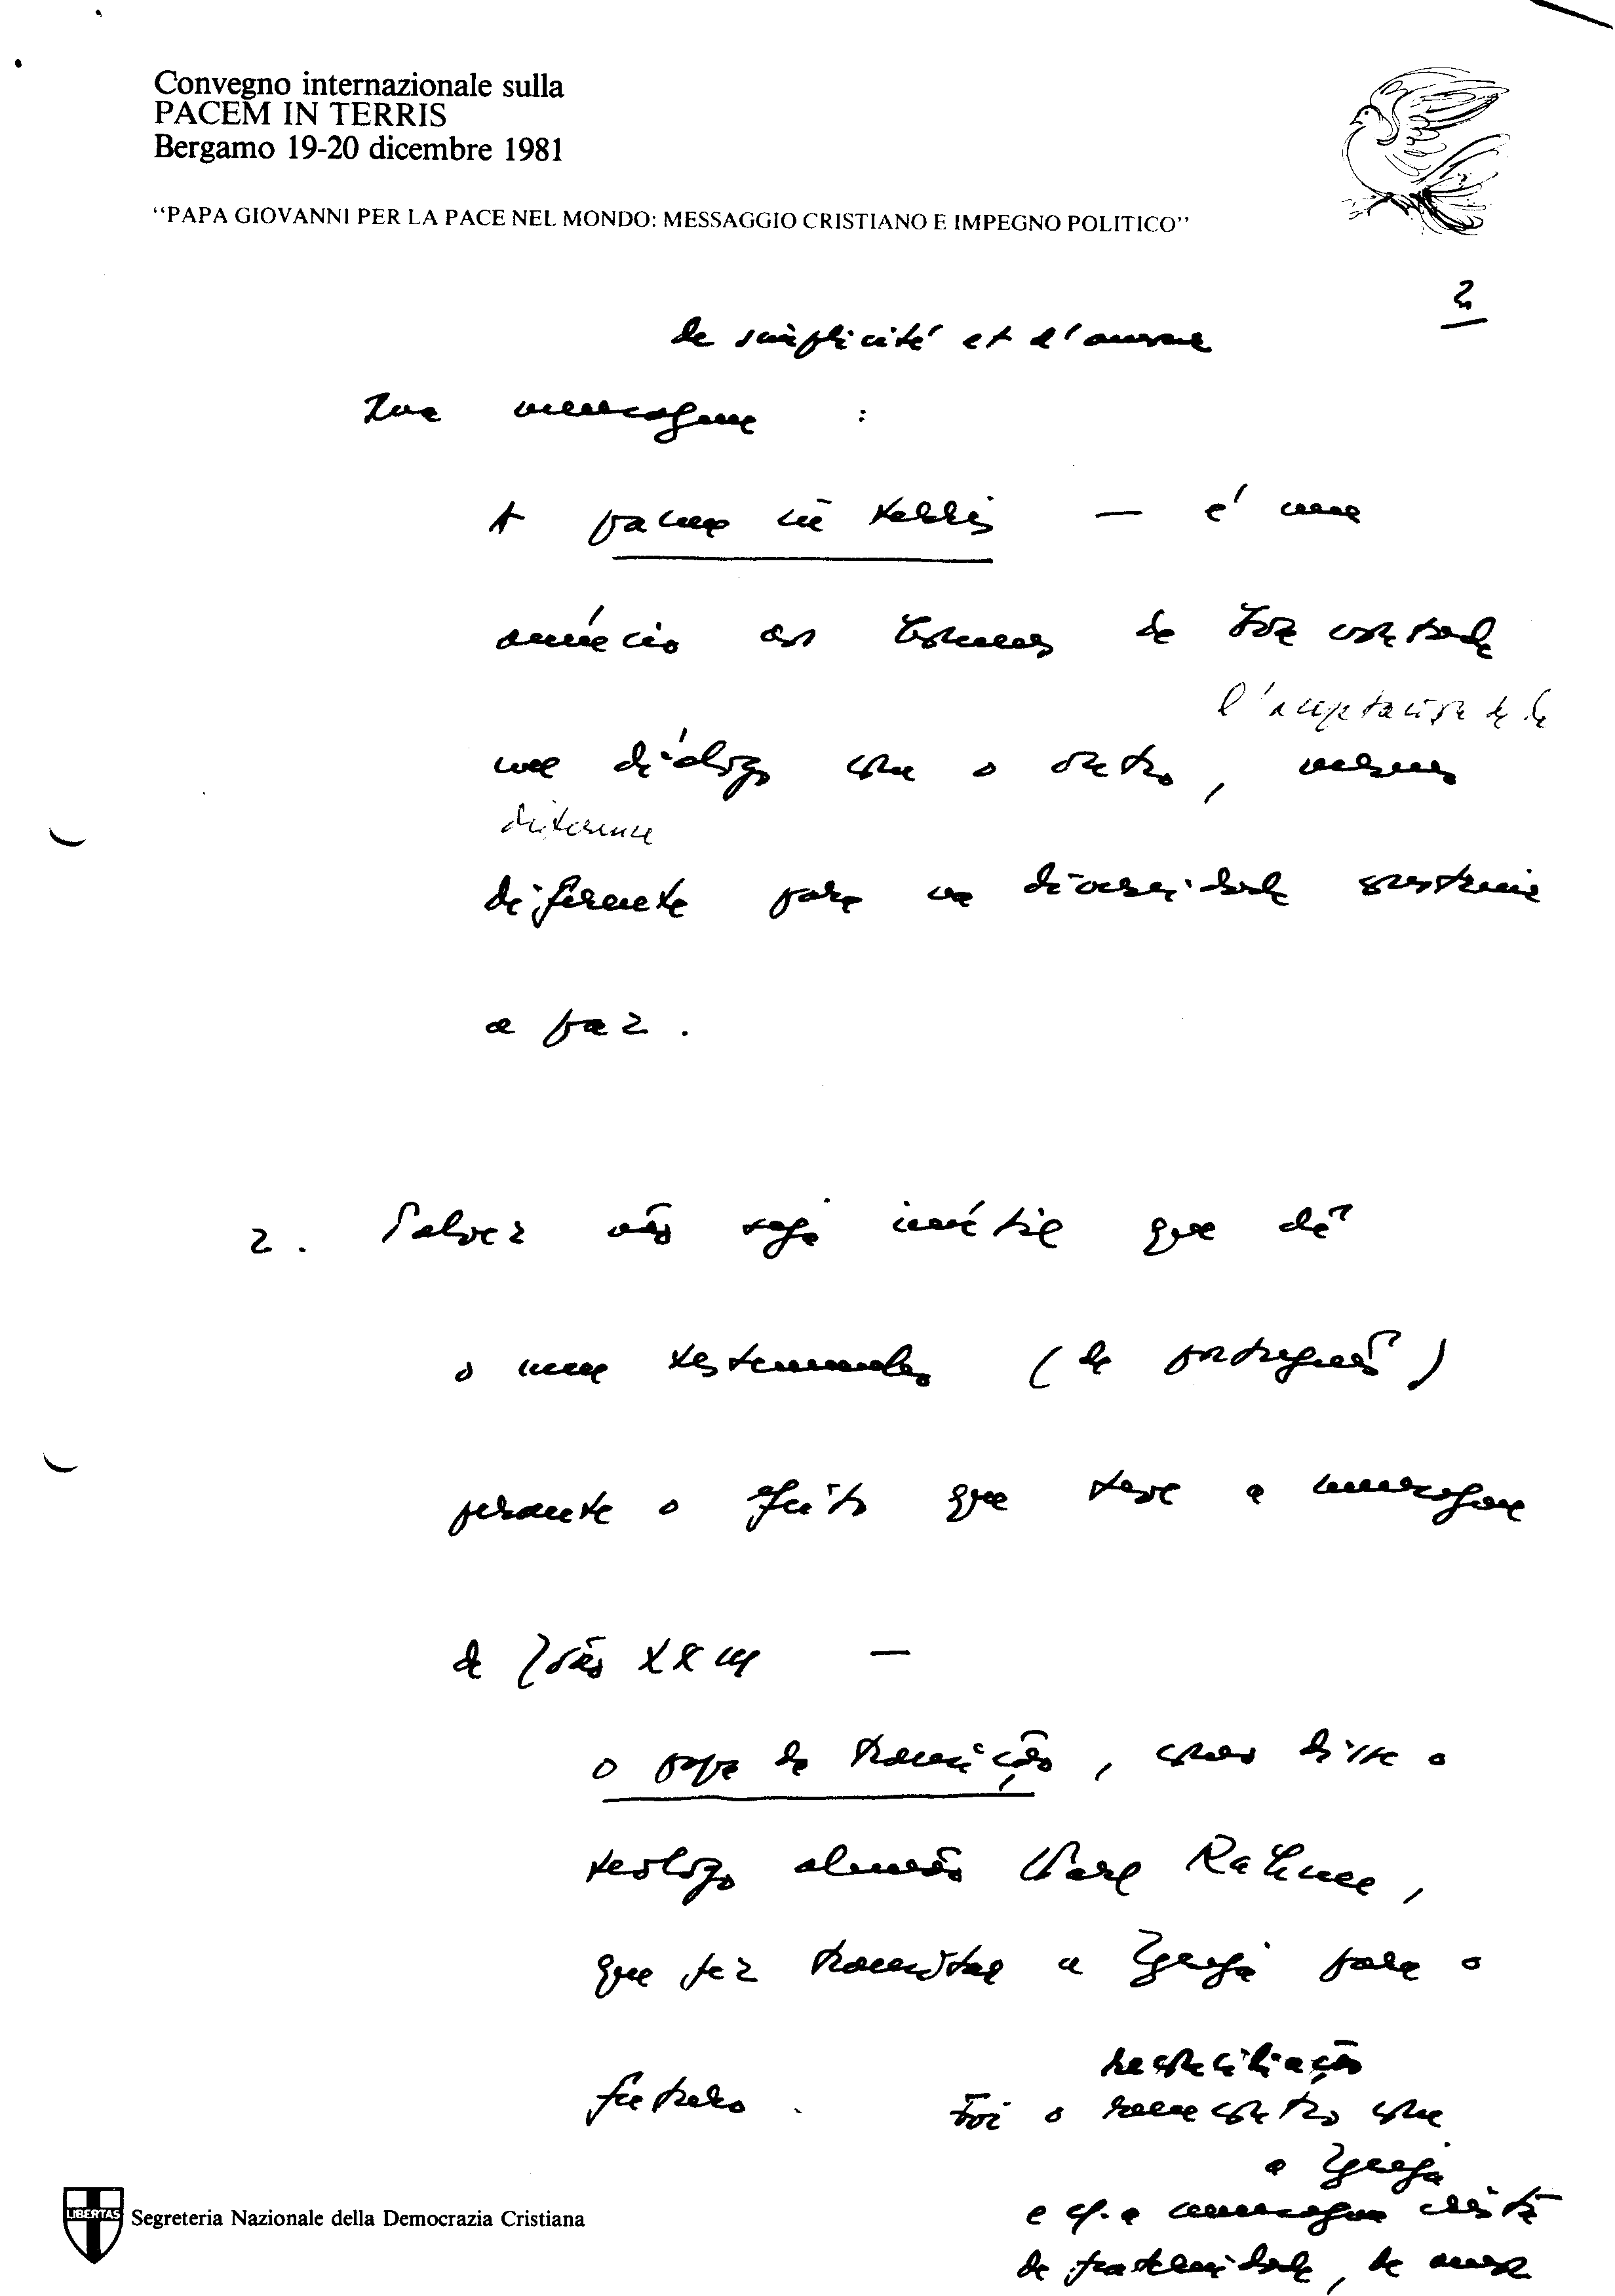 Convegno internazionale sulla
PACEM IN TERRIS
Bergamo 19-20 dicembre 1981
"PAPA GIOVANNI PER LA PACE NEL MONDO: MESSAGGIO CRISTIANO E IMPEGNO POLITICO"
2
de simplicité et d'amour
mensagem :
A pacem in terris — é um
anúncio aos homens de boa vontade
l'acceptation de la
um diálogo com o outro, mesmo
différence
diferente para na diversidade construir
a paz.
2. Talvez não seja inútil que dê
o meu testemunho (de português)
perante o efeito que teve a mensagem
de João XXIII —
o papa de transição, como disse o
teólogo alemão Karl Rahner,
que fez transitar a Igreja para o
futuro. Foi o reencontro com
reconciliação
a Igreja
e c/ a mensagem cristã
de fraternidade, de amor
LIBERTAS
Segreteria Nazionale della Democrazia Cristiana